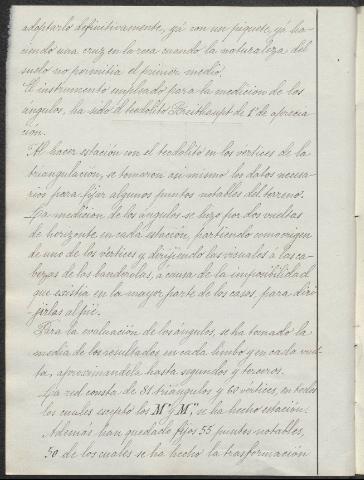 adoptarlo definitivamente, yá con un piquete, yá ha-
ciendo una cruz en la roca cuando la naturaleza del
suelo no permitia el primer medio.
El instrumento empleado para la medicion de los
ángulos, ha sido el teodolito Breithaupt de 1' de aprecia-
cion.
Al hacer estación con el teodolito en los vertices de la
triangulacion, se tomaron asi mismo los datos necesa-
rios para fijar algunos puntos notables del terreno.
La medicion de los ángulos se hizo por dos vueltas
de horizonte en cada estación, partiendo como origen
de uno de los vértices y dirijiendo las visuales á las ca-
bezas de las banderolas, á causa de la imposibilidad
que existia en la mayor parte de los casos, para diri-
girlas al pié.
Para la evaluación de los ángulos, se ha tomado la
media de los resultados en cada limbo y en cada vuel-
ta, aproximandola hasta segundos y terceros.
La red consta de 81 triángulos y 60 vértices, en todos
los cuales escepto los M' y M'', se ha hecho estacion.
Además han quedado fijos 55 puntos notables,
50 de los cuales se ha hecho la trasformación